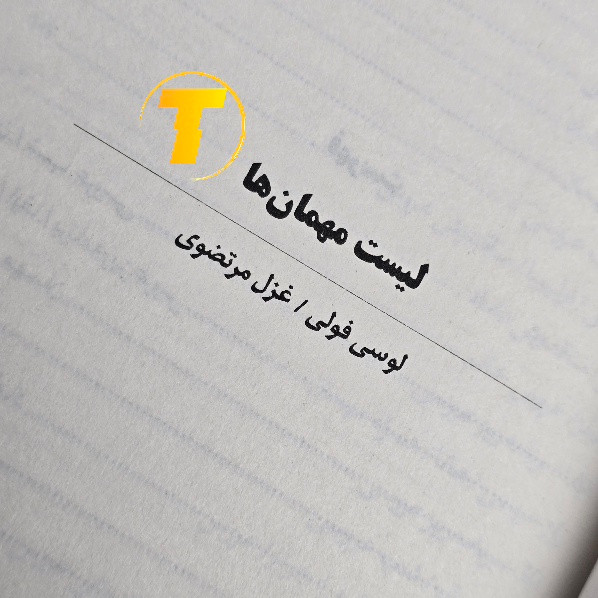 T
لیست مهمان‌ها
لوسی فولی / غزل مرتضوی